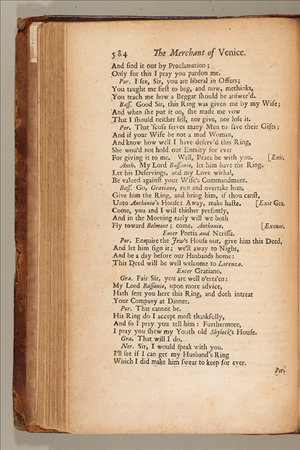 584 The Merchant of Venice.
And find it out by Proclamation;
Only for this I pray you pardon me.
Por. I see, Sir, you are liberal in Offers;
You taught me first to beg, and now, methinks,
You teach me how a Beggar should be answer'd.
Bass. Good Sir, this Ring was given me by my Wife;
And when she put it on, she made me vow
That I should neither sell, nor give, nor lose it.
Por. That 'scuse serves many Men to save their Gifts;
And if your Wife be not a mad Woman,
And know how well I have deserv'd this Ring,
She wou'd not hold out Enmity for ever
For giving it to me. Well, Peace be with you. [Exit.
Anth. My Lord Bassanio, let him have the Ring,
Let his Deservings, and my Love withal,
Be valued against your Wife's Commandment.
Bass. Go, Gratiano, run and overtake him,
Give him the Ring, and bring him, if thou canst,
Unto Anthonio's House: Away, make haste. [Exit Gra.
Come, you and I will thither presently,
And in the Morning early will we both
Fly toward Belmont; come, Anthonio. [Exeunt.
Enter Portia and Nerissa.
Por. Enquire the Jew's House out, give him this Deed,
And let him sign it; we'll away to Night,
And be a day before our Husbands home:
This Deed will be well welcome to Lorenzo.
Enter Gratiano.
Gra. Fair Sir, you are well o'erta'en:
My Lord Bassanio, upon more advice,
Hath sent you here this Ring, and doth intreat
Your Company at Dinner.
Por. That cannot be.
His Ring do I accept most thankfully,
And so I pray you tell him: Furthermore,
I pray you shew my Youth old Shylock's House.
Gra. That will I do.
Ner. Sir, I would speak with you.
I'll see if I can get my Husband's Ring
Which I did make him swear to keep for ever.
Por.